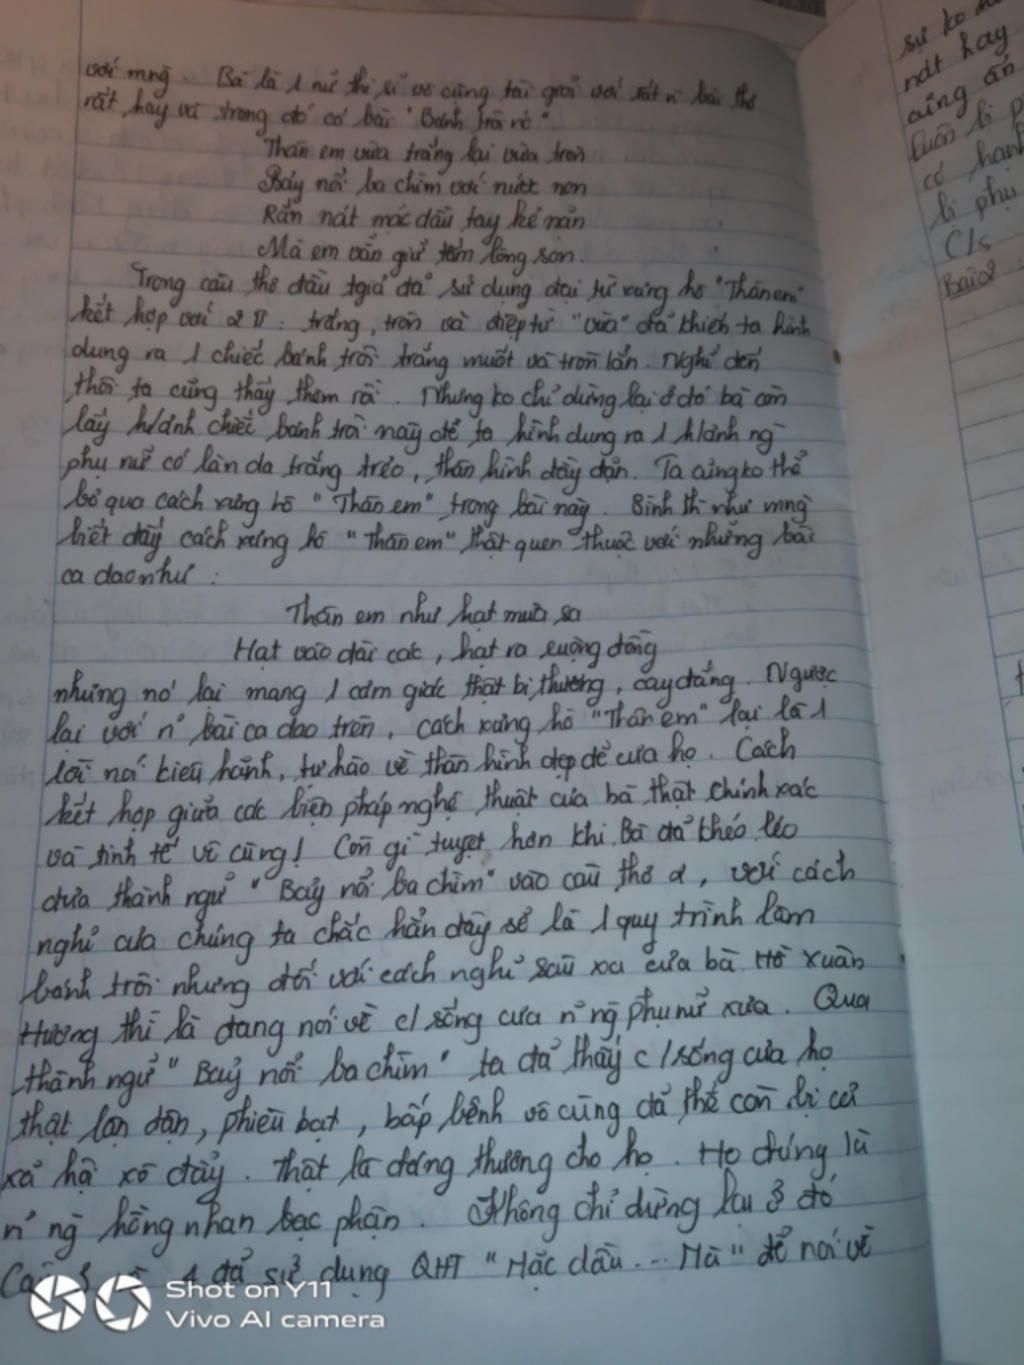 với mng. Bà là 1 nữ thi sĩ vô cùng tài giỏi với rất n' bài thơ
rất hay và trong đó có bài "Bánh trôi nc".
Thân em vừa trắng lại vừa tròn
Bảy nổi ba chìm với nước non
Rắn nát mặc dầu tay kẻ nặn
Mà em vẫn giữ tấm lòng son.
Trong câu thơ đầu tgiả đã sử dụng đại từ xưng hô "Thân em"
kết hợp với 2 TT: trắng, tròn và điệp từ "vừa" đã khiến ta hình
dung ra 1 chiếc bánh trôi trắng muốt và tròn lẳn. Nghĩ đến
thôi ta cũng thấy thèm rồi. Nhưng ko chỉ dừng lại ở đó bà còn
lấy h/ảnh chiếc bánh trôi này để ta hình dung ra 1 h/ảnh ng
phụ nữ có làn da trắng trẻo, thân hình đầy đặn. Ta cũng ko thể
bỏ qua cách xưng hô "Thân em" trong bài này. Bình th như mng
biết đấy cách xưng hô "Thân em" thật quen thuộc với những bài
ca dao như :
Thân em như hạt mưa sa
Hạt vào đài các, hạt ra ruộng đồng
nhưng nó lại mang 1 cảm giác thật bi thương, cay đắng. Ngược
lại với n' bài ca dao trên, cách xưng hô "Thân em" lại là 1
lời nói kiêu hãnh, tự hào về thân hình đẹp đẽ của họ. Cách
kết hợp giữa các biện pháp nghệ thuật của bà thật chính xác
và tinh tế vô cùng! Còn gì tuyệt hơn khi Bà đã khéo léo
đưa thành ngữ "Bảy nổi ba chìm" vào câu thơ 2, với cách
nghĩ của chúng ta chắc hẳn đây sẽ là 1 quy trình làm
bánh trôi nhưng đối với cách nghĩ sâu xa của bà Hồ Xuân
Hương thì là đang nói về c/sống của n' ng phụ nữ xưa. Qua
thành ngữ "Bảy nổi ba chìm" ta đã thấy c/sống của họ
thật lận đận, phiêu bạt, bấp bênh vô cùng đã thế còn bị cả
xã hội xô đẩy. Thật là đáng thương cho họ. Họ đúng là
n' ng hồng nhan bạc phận. Không chỉ dừng lại ở đó
4 đã sử dụng QHT "Mặc dầu... Mà" để nói về
Shot on Y11
Vivo AI camera
sự ko
nát hay
cũng ấn
luôn bị
có hạnh
bị phụ
C/s
Bài 2 :